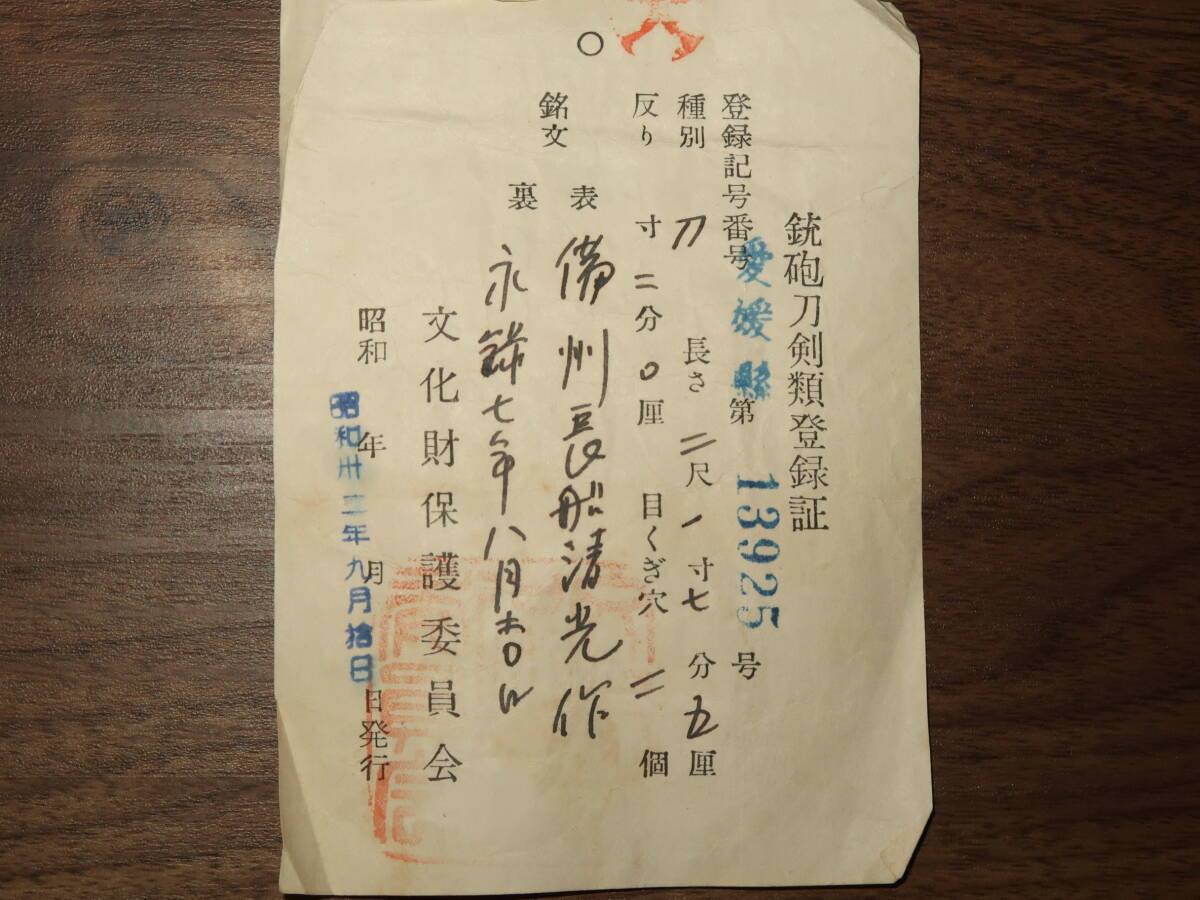 銃砲刀剣類登録証
登録記号番号 愛媛縣 第 13925 号
種別 刀 長さ 二尺一寸七分五厘
反り 寸二分0厘 目くぎ穴 二個
銘文 表 備州長船清光作
裏 永録七年八月吉日
文化財保護委員会
昭和 年 月 日発行
昭和卅三年九月拾日